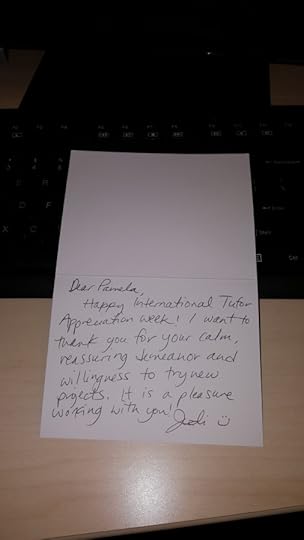 Dear Pamela,
Happy International Tutor
Appreciation Week! I want to
thank you for your calm,
reassuring demeanor and
willingness to try new
projects. It is a pleasure
working with you!
Judi ☺